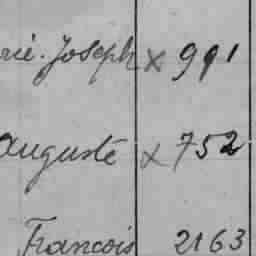 rie. Joseph x 991
Auguste x 752
Francois 2163